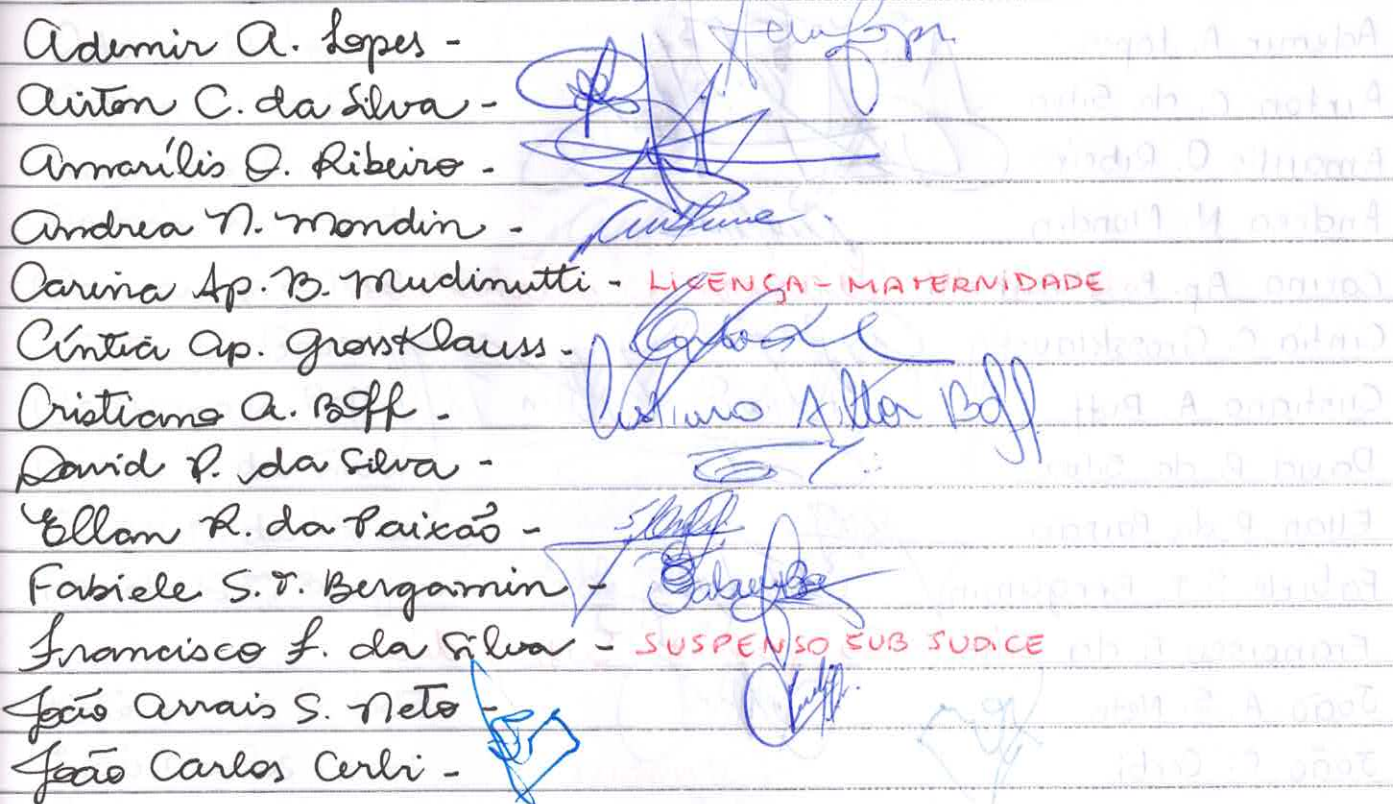 Ademir A. Lopes -
Airton C. da Silva -
Amarílis O. Ribeiro -
Andrea N. Mondin -
Carina Ap. B. Mudinutti - LICENÇA - MATERNIDADE
Cíntia Ap. GrossKlauss -
Cristiano A. Boff - Cristiano Altor Boff
David P. da Silva -
Ellan R. da Paixão -
Fabiele S. T. Bergamin -
Francisco F. da Silva - SUSPENSO SUB JUDICE
João Arrais S. Neto -
João Carlos Cerbi -